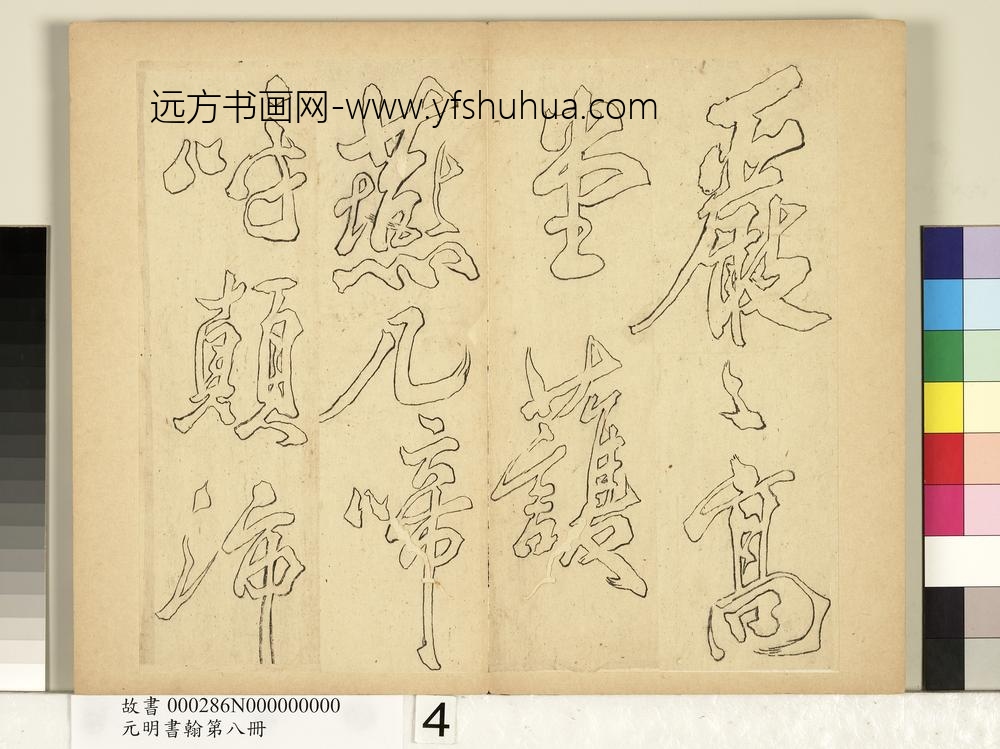 远方书画网-www.yfshuhua.com
嚴〻高
堂護
几啼
顛沛
故書 000286N000000000
元明書翰第八冊
4